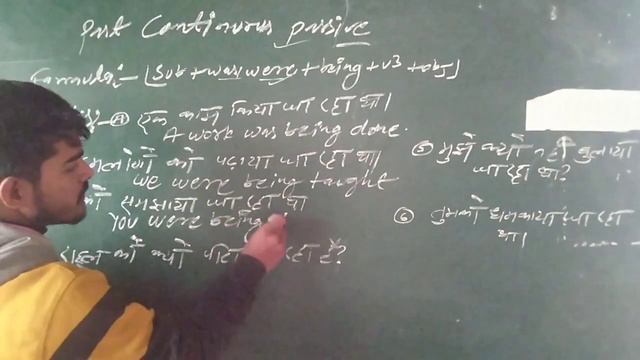 Past Continuous passive
Formula:- [Sub + was/were + being + v3 + obj]
एक काम किया जा रहा था।
A work was being done.
को पढ़ाया जा रहा था।
We were being taught
समझाया जा रहा था
You were being
को क्यों रहा है?
⑤ मुझे क्यों नहीं बुलाया
जा रहा था?
⑥ तुमको धमकाया जा रहा
था।